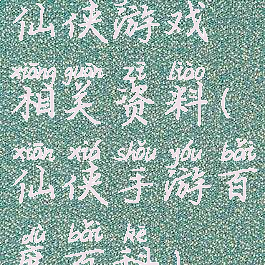 仙侠游戏
xiāng guān zī liào
相关资料(
xiān xiá shǒu yóu bǎi
仙侠手游百
dù bǎi kē
度百科)